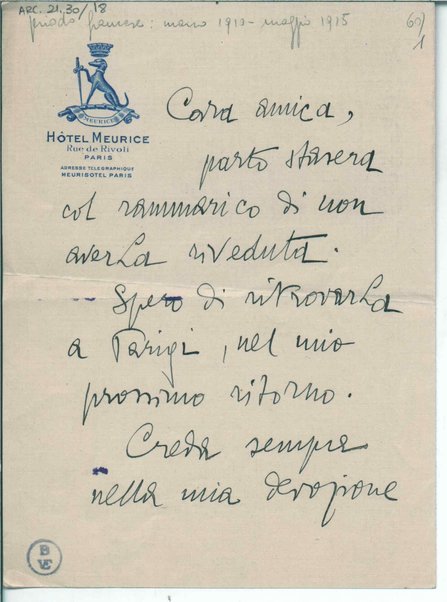 ARC. 21.30/18
periodo francese: marzo 1910 - maggio 1915
60/1
MEURICE
HÔTEL MEURICE
Rue de Rivoli
PARIS
ADRESSE TÉLÉGRAPHIQUE
MEURISOTEL PARIS
Cara amica,
parto stasera
col rammarico di non
averLa riveduta.
Spero di ritrovarLa
a Parigi, nel mio
prossimo ritorno.
Creda sempre
nella mia devozione
BVE